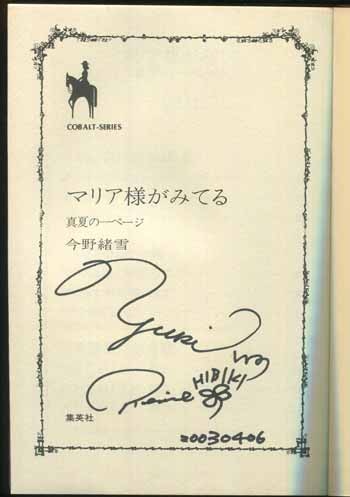 COBALT-SERIES
マリア様がみてる
真夏の一ページ
今野緒雪
Yuki
HIBIKI
Reine
集英社
20030406